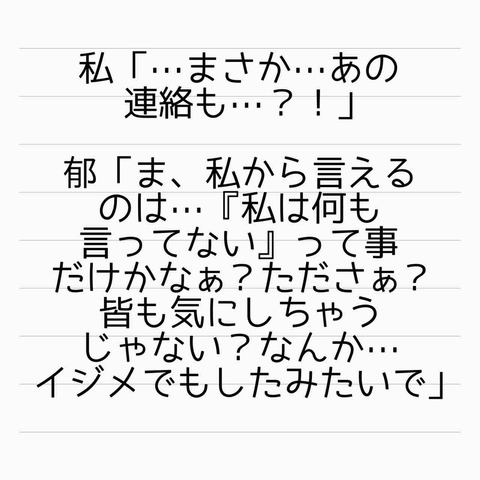 私「…まさか…あの
連絡も…？！」
郁「ま、私から言える
のは…『私は何も
言ってない』って事
だけかなぁ？たださぁ？
皆も気にしちゃう
じゃない？なんか…
イジメでもしたみたいで」